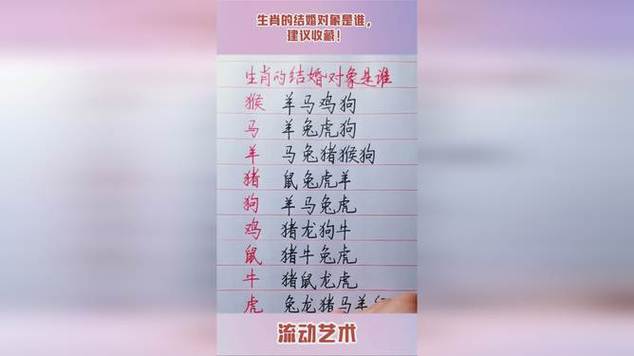 生肖的结婚对象是谁,
建议收藏!
生肖的结婚对象是谁
猴 羊马鸡狗
马 羊兔虎狗
羊 马兔猪猴狗
猪 鼠兔虎羊
狗 羊马兔虎
鸡 猪龙狗牛
鼠 猪牛兔虎
牛 猪鼠龙虎
虎 兔龙猪马羊
流动艺术